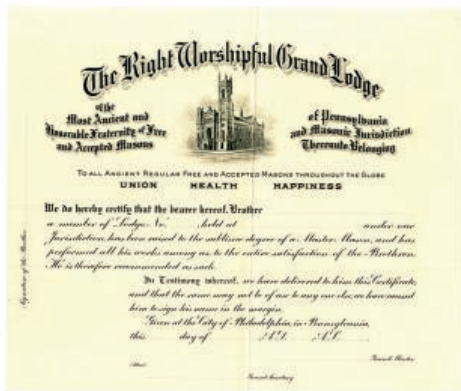 The Right Worshipful Grand Lodge
of the
Most Ancient and
Honorable Fraternity of Free
and Accepted Masons
of Pennsylvania
and Masonic Jurisdiction
Thereunto Belonging
TO ALL ANCIENT REGULAR FREE AND ACCEPTED MASONS THROUGHOUT THE GLOBE
UNION HEALTH HAPPINESS
We do hereby certify that the bearer hereof, Brother
a member of Lodge No. , held at under our
Jurisdiction, has been raised to the sublime degree of a Master Mason, and has
performed all his works among us to the entire satisfaction of the Brethren.
He is therefore recommended as such.
In Testimony whereof, we have delivered to him this Certificate,
and that the same may not be of use to any one else, we have caused
him to sign his name in the margin.
Given at the City of Philadelphia, in Pennsylvania,
this day of A.D. , A.L.
Grand Master
Attest:
Grand Secretary
Signature of the Brother